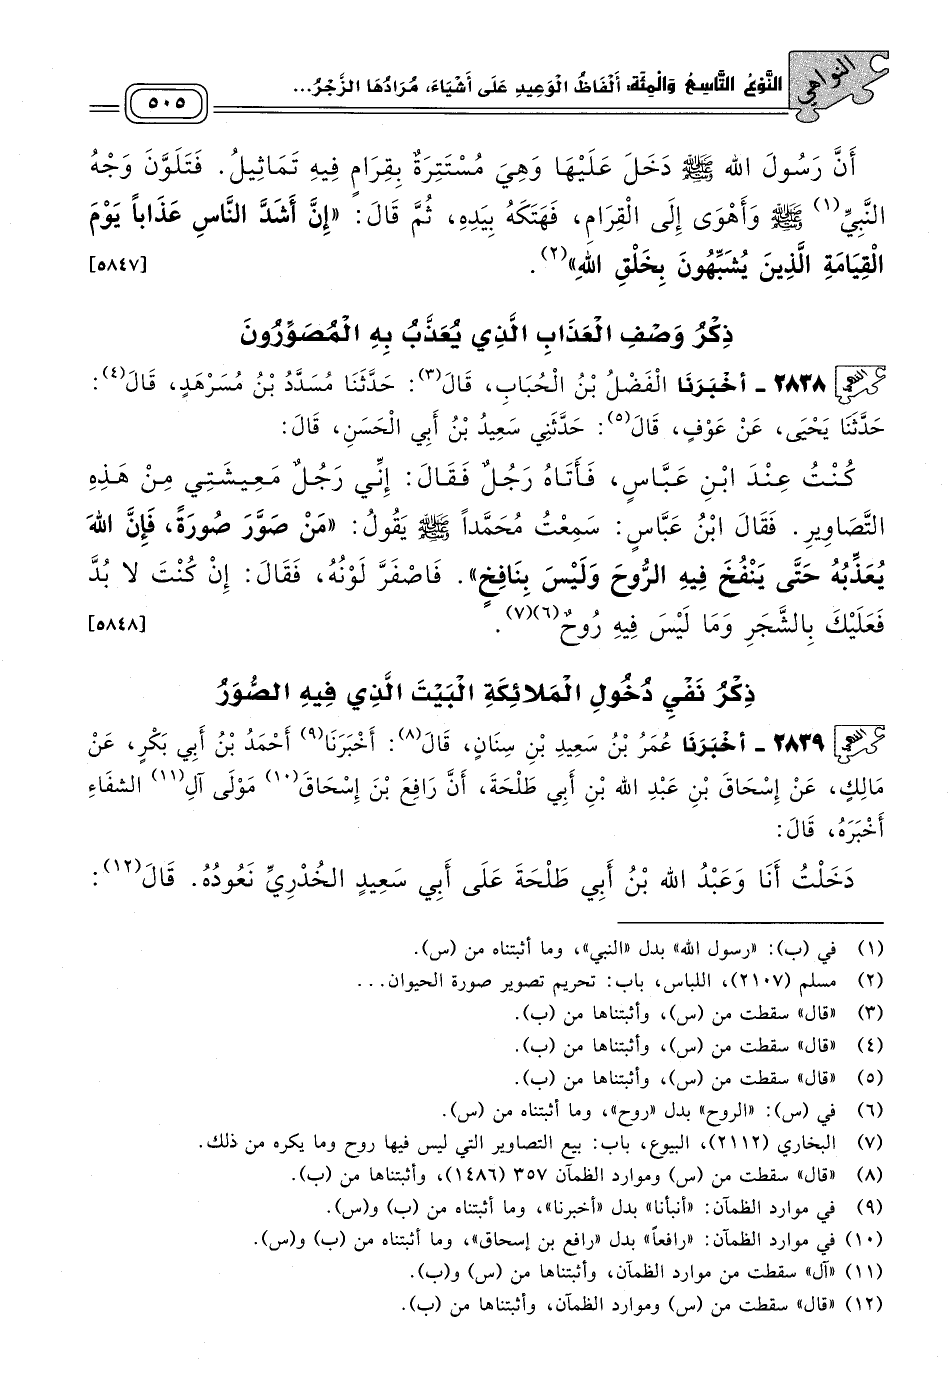 النواهي
النَّوْعُ التَّاسِعُ وَالْمِئَةُ، أَلْفَاظُ الْوَعِيدِ عَلَى أَشْيَاءَ، مُرَادُهَا الزَّجْرُ...
٥٠٥
أَنَّ رَسُولَ الله ﷺ دَخَلَ عَلَيْهَا وَهِيَ مُسْتَتِرَةٌ بِقِرَامٍ فِيهِ تَمَاثِيلُ. فَتَلَوَّنَ وَجْهُ
النَّبِيِّ(١) ﷺ وَأَهْوَى إِلَى الْقِرَامِ، فَهَتَكَهُ بِيَدِهِ، ثُمَّ قَالَ: «إِنَّ أَشَدَّ النَّاسِ عَذَاباً يَوْمَ
الْقِيَامَةِ الَّذِينَ يُشَبِّهُونَ بِخَلْقِ اللهِ»(٢). [٥٨٤٧]
ذِكْرُ وَصْفِ الْعَذَابِ الَّذِي يُعَذَّبُ بِهِ الْمُصَوِّرُونَ
٢٨٣٨ - أخْبَرَنَا الْفَضْلُ بْنُ الْحُبَابِ، قَالَ(٣): حَدَّثَنَا مُسَدَّدُ بْنُ مُسَرْهَدٍ، قَالَ(٤):
حَدَّثَنَا يَحْيَى، عَنْ عَوْفٍ، قَالَ(٥): حَدَّثَنِي سَعِيدُ بْنُ أَبِي الْحَسَنِ، قَالَ:
كُنْتُ عِنْدَ ابْنِ عَبَّاسٍ، فَأَتَاهُ رَجُلٌ فَقَالَ: إِنِّي رَجُلٌ مَعِيشَتِي مِنْ هَذِهِ
التَّصَاوِيرِ. فَقَالَ ابْنُ عَبَّاسٍ: سَمِعْتُ مُحَمَّداً ﷺ يَقُولُ: «مَنْ صَوَّرَ صُورَةً، فَإِنَّ اللهَ
يُعَذِّبُهُ حَتَّى يَنْفُخَ فِيهِ الرُّوحَ وَلَيْسَ بِنَافِخٍ». فَاصْفَرَّ لَوْنُهُ، فَقَالَ: إِنْ كُنْتَ لا بُدَّ
فَعَلَيْكَ بِالشَّجَرِ وَمَا لَيْسَ فِيهِ رُوحٌ(٦)(٧). [٥٨٤٨]
ذِكْرُ نَفْيِ دُخُولِ الْمَلائِكَةِ الْبَيْتَ الَّذِي فِيهِ الصُّوَرُ
٢٨٣٩ - أخْبَرَنَا عُمَرُ بْنُ سَعِيدِ بْنِ سِنَانٍ، قَالَ(٨): أَخْبَرَنَا(٩) أَحْمَدُ بْنُ أَبِي بَكْرٍ، عَنْ
مَالِكٍ، عَنْ إِسْحَاقَ بْنِ عَبْدِ الله بْنِ أَبِي طَلْحَةَ، أَنَّ رَافِعَ بْنَ إِسْحَاقَ(١٠) مَوْلَى آلِ(١١) الشفَاءِ
أَخْبَرَهُ، قَالَ:
دَخَلْتُ أَنَا وَعَبْدُ الله بْنُ أَبِي طَلْحَةَ عَلَى أَبِي سَعِيدٍ الْخُدْرِيِّ نَعُودُهُ. قَالَ(١٢):
(١) في (ب): «رسول الله» بدل «النبي»، وما أثبتناه من (س).
(٢) مسلم (٢١٠٧)، اللباس، باب: تحريم تصوير صورة الحيوان...
(٣) «قال» سقطت من (س)، وأثبتناها من (ب).
(٤) «قال» سقطت من (س)، وأثبتناها من (ب).
(٥) «قال» سقطت من (س)، وأثبتناها من (ب).
(٦) في (س): «الروح» بدل «روح»، وما أثبتناه من (س).
(٧) البخاري (٢١١٢)، البيوع، باب: بيع التصاوير التي ليس فيها روح وما يكره من ذلك.
(٨) «قال» سقطت من (س) وموارد الظمآن ٣٥٧ (١٤٨٦)، وأثبتناها من (ب).
(٩) في موارد الظمآن: «أنبأنا» بدل «أخبرنا»، وما أثبتناه من (ب) و(س).
(١٠) في موارد الظمآن: «رافعاً» بدل «رافع بن إسحاق»، وما أثبتناه من (ب) و(س).
(١١) «آل» سقطت من موارد الظمآن، وأثبتناها من (س) و(ب).
(١٢) «قال» سقطت من (س) وموارد الظمآن، وأثبتناها من (ب).